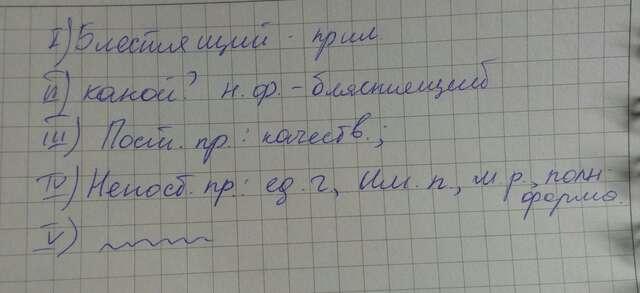 I) Блестящий - прил
II) какой? н.ф. - блястящий
III) Пост. пр.: качеств.;
IV) Непост. пр: ед.ч, Им.п., м.р., полн.
форма.
V)